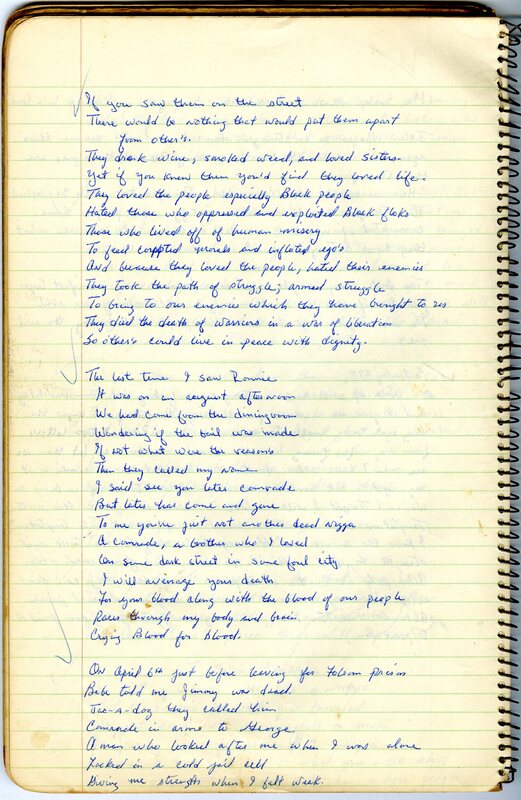 If you saw them on the street
There would be nothing that would put them apart
from other's.
They drank wine, smoked weed, and loved sisters.
Yet if you knew them you'd find they loved life.
They loved the people especially Black people
Hated those who oppressed and exploited Black floks
Those who lived off of human misery
To feed morals and inflated ego's
And because they loved the people, hated their enemies
They took the path of struggle; armed struggle
To bring to our enemies which they have brought to us
They died the death of warriors in a war of liberation
So other's could live in peace with dignity.
The last time I saw Ronnie
It was on an august afternoon
We had come from the diningroom
Wondering if the bail was made
If not what were the reasons
Then they called my name
I said see you later comrade
But later has come and gone
To me you're just not another dead nigga
A comrade, a brother who I loved
On some dark street in some foul city
I will avenage your death
For your blood along with the blood of our people
Races through my body and brain.
Crying Blood for Blood.
On April 6th just before leaving for Folsom prison
Bebe told me Jimmy was dead.
they called him
Comrade in arms to George
A man who looked after me when I was alone
Locked in a cold jail cell
Giving me strength when I felt weak.